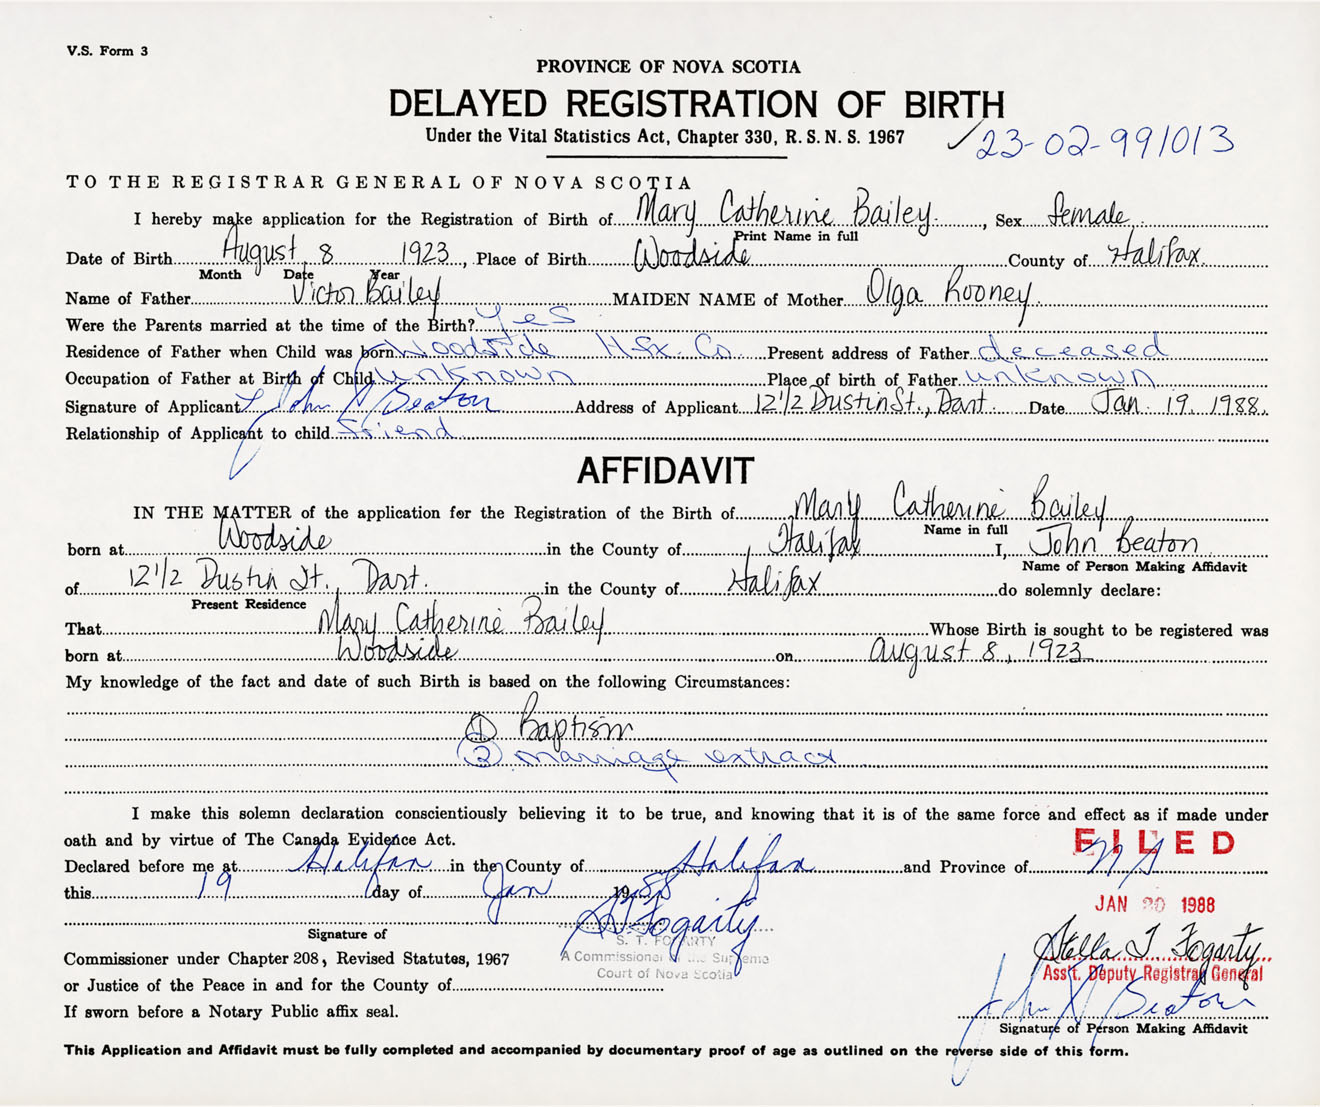 V.S. Form 3
PROVINCE OF NOVA SCOTIA
DELAYED REGISTRATION OF BIRTH
Under the Vital Statistics Act, Chapter 330, R.S.N.S. 1967 ✓23-02-991013
TO THE REGISTRAR GENERAL OF NOVA SCOTIA
I hereby make application for the Registration of Birth of Mary Catherine Bailey, Sex female
Print Name in full
Date of Birth August 8 1923, Place of Birth Woodside County of Halifax
Month Date Year
Name of Father Victor Bailey MAIDEN NAME of Mother Olga Rooney
Were the Parents married at the time of the Birth? Yes
Residence of Father when Child was born Woodside Hfx. Co. Present address of Father deceased
Occupation of Father at Birth of Child unknown Place of birth of Father unknown
Signature of Applicant John Beaton Address of Applicant 12 1/2 Dustin St., Dart. Date Jan. 19, 1988
Relationship of Applicant to child friend
AFFIDAVIT
IN THE MATTER of the application for the Registration of the Birth of Mary Catherine Bailey
Name in full
born at Woodside in the County of Halifax I, John Beaton
Name of Person Making Affidavit
of 12 1/2 Dustin St., Dart. in the County of Halifax do solemnly declare:
Present Residence
That Mary Catherine Bailey Whose Birth is sought to be registered was
born at Woodside on August 8, 1923
My knowledge of the fact and date of such Birth is based on the following Circumstances:
① Baptism
② marriage extract
I make this solemn declaration conscientiously believing it to be true, and knowing that it is of the same force and effect as if made under
oath and by virtue of The Canada Evidence Act.
FILED
Declared before me at Halifax in the County of Halifax and Province of NS
this 19 day of Jan 1988
JAN 20 1988
S T Fogarty
Signature of
S. T. FOGARTY
Stella T Fogarty
Commissioner under Chapter 208, Revised Statutes, 1967
A Commissioner of the Supreme
Court of Nova Scotia
Ass't. Deputy Registrar General
or Justice of the Peace in and for the County of
John Beaton
If sworn before a Notary Public affix seal.
Signature of Person Making Affidavit
This Application and Affidavit must be fully completed and accompanied by documentary proof of age as outlined on the reverse side of this form.